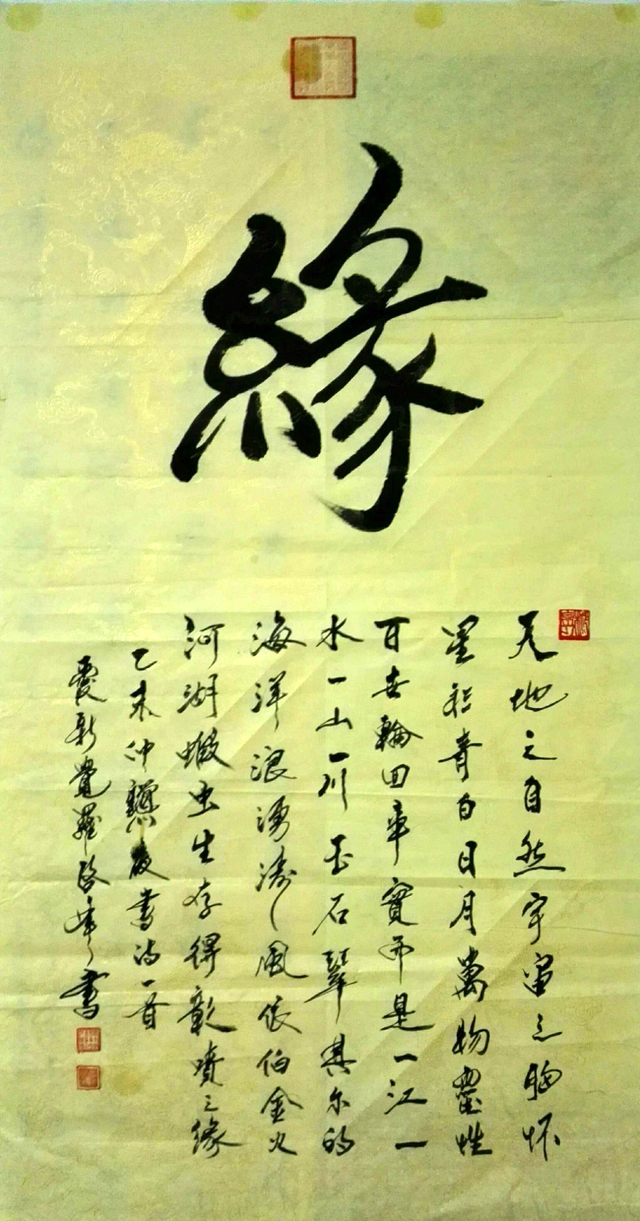 緣
天地之自然宇宙之胸怀
星移青白日月萬物靈性
百世輪回牽實而是一江一
水一山一川玉石翠其尔的
海洋浪湧濤風俵伯金火
河湖蝦虫生存得乾噴之緣
乙未仲夏書诗一首
愛新覺羅啓 書